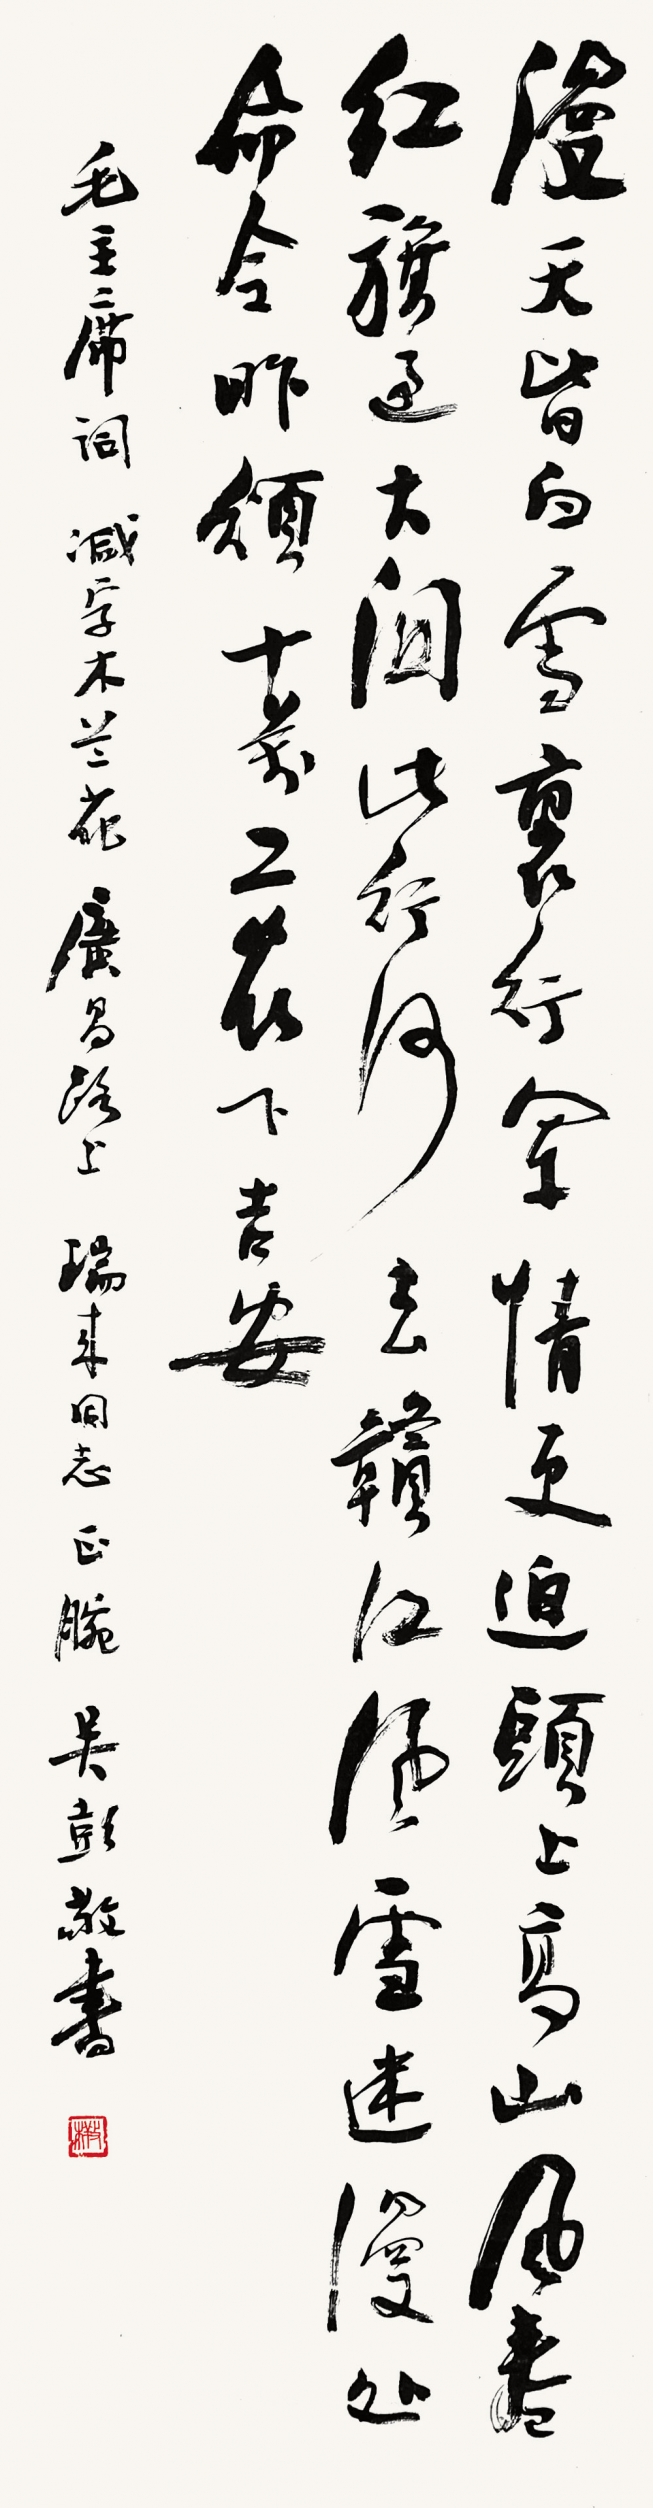 漫天皆白雪裏行军情更迫頭上高山风卷
红旗过大関此行何去贛江风雪迷漫处
命令昨頒十萬工农下吉安
毛主席词 减字木兰花 廣昌路上 瑞来同志正腕 吴彭敬書